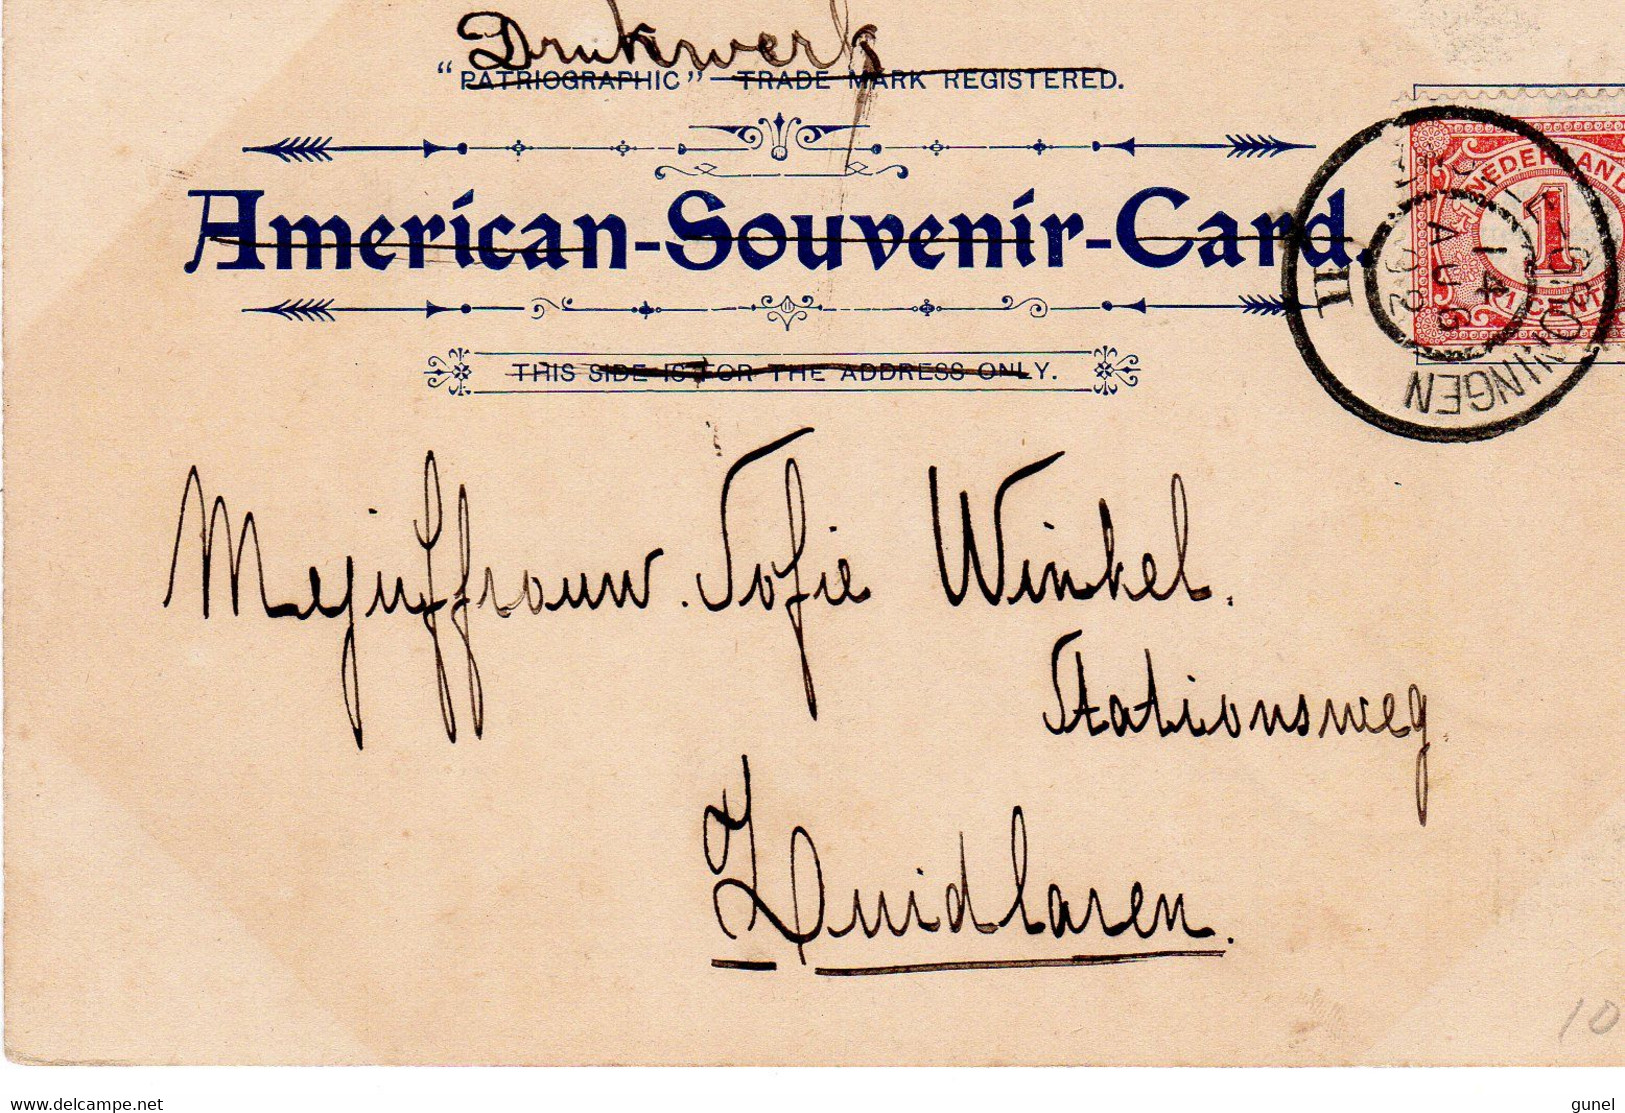 Drukwerk
"PATRIOGRAPHIC" TRADE MARK REGISTERED.
American-Souvenir-Card.
THIS SIDE IS FOR THE ADDRESS ONLY.
NEDERLAND
1
1 CENT
GRONINGEN
14
AUG
02
II
Mejuffrouw. Sofie Winkel.
Stationsweg.
Zuidlaren.
10
www.delcampe.net
gunel